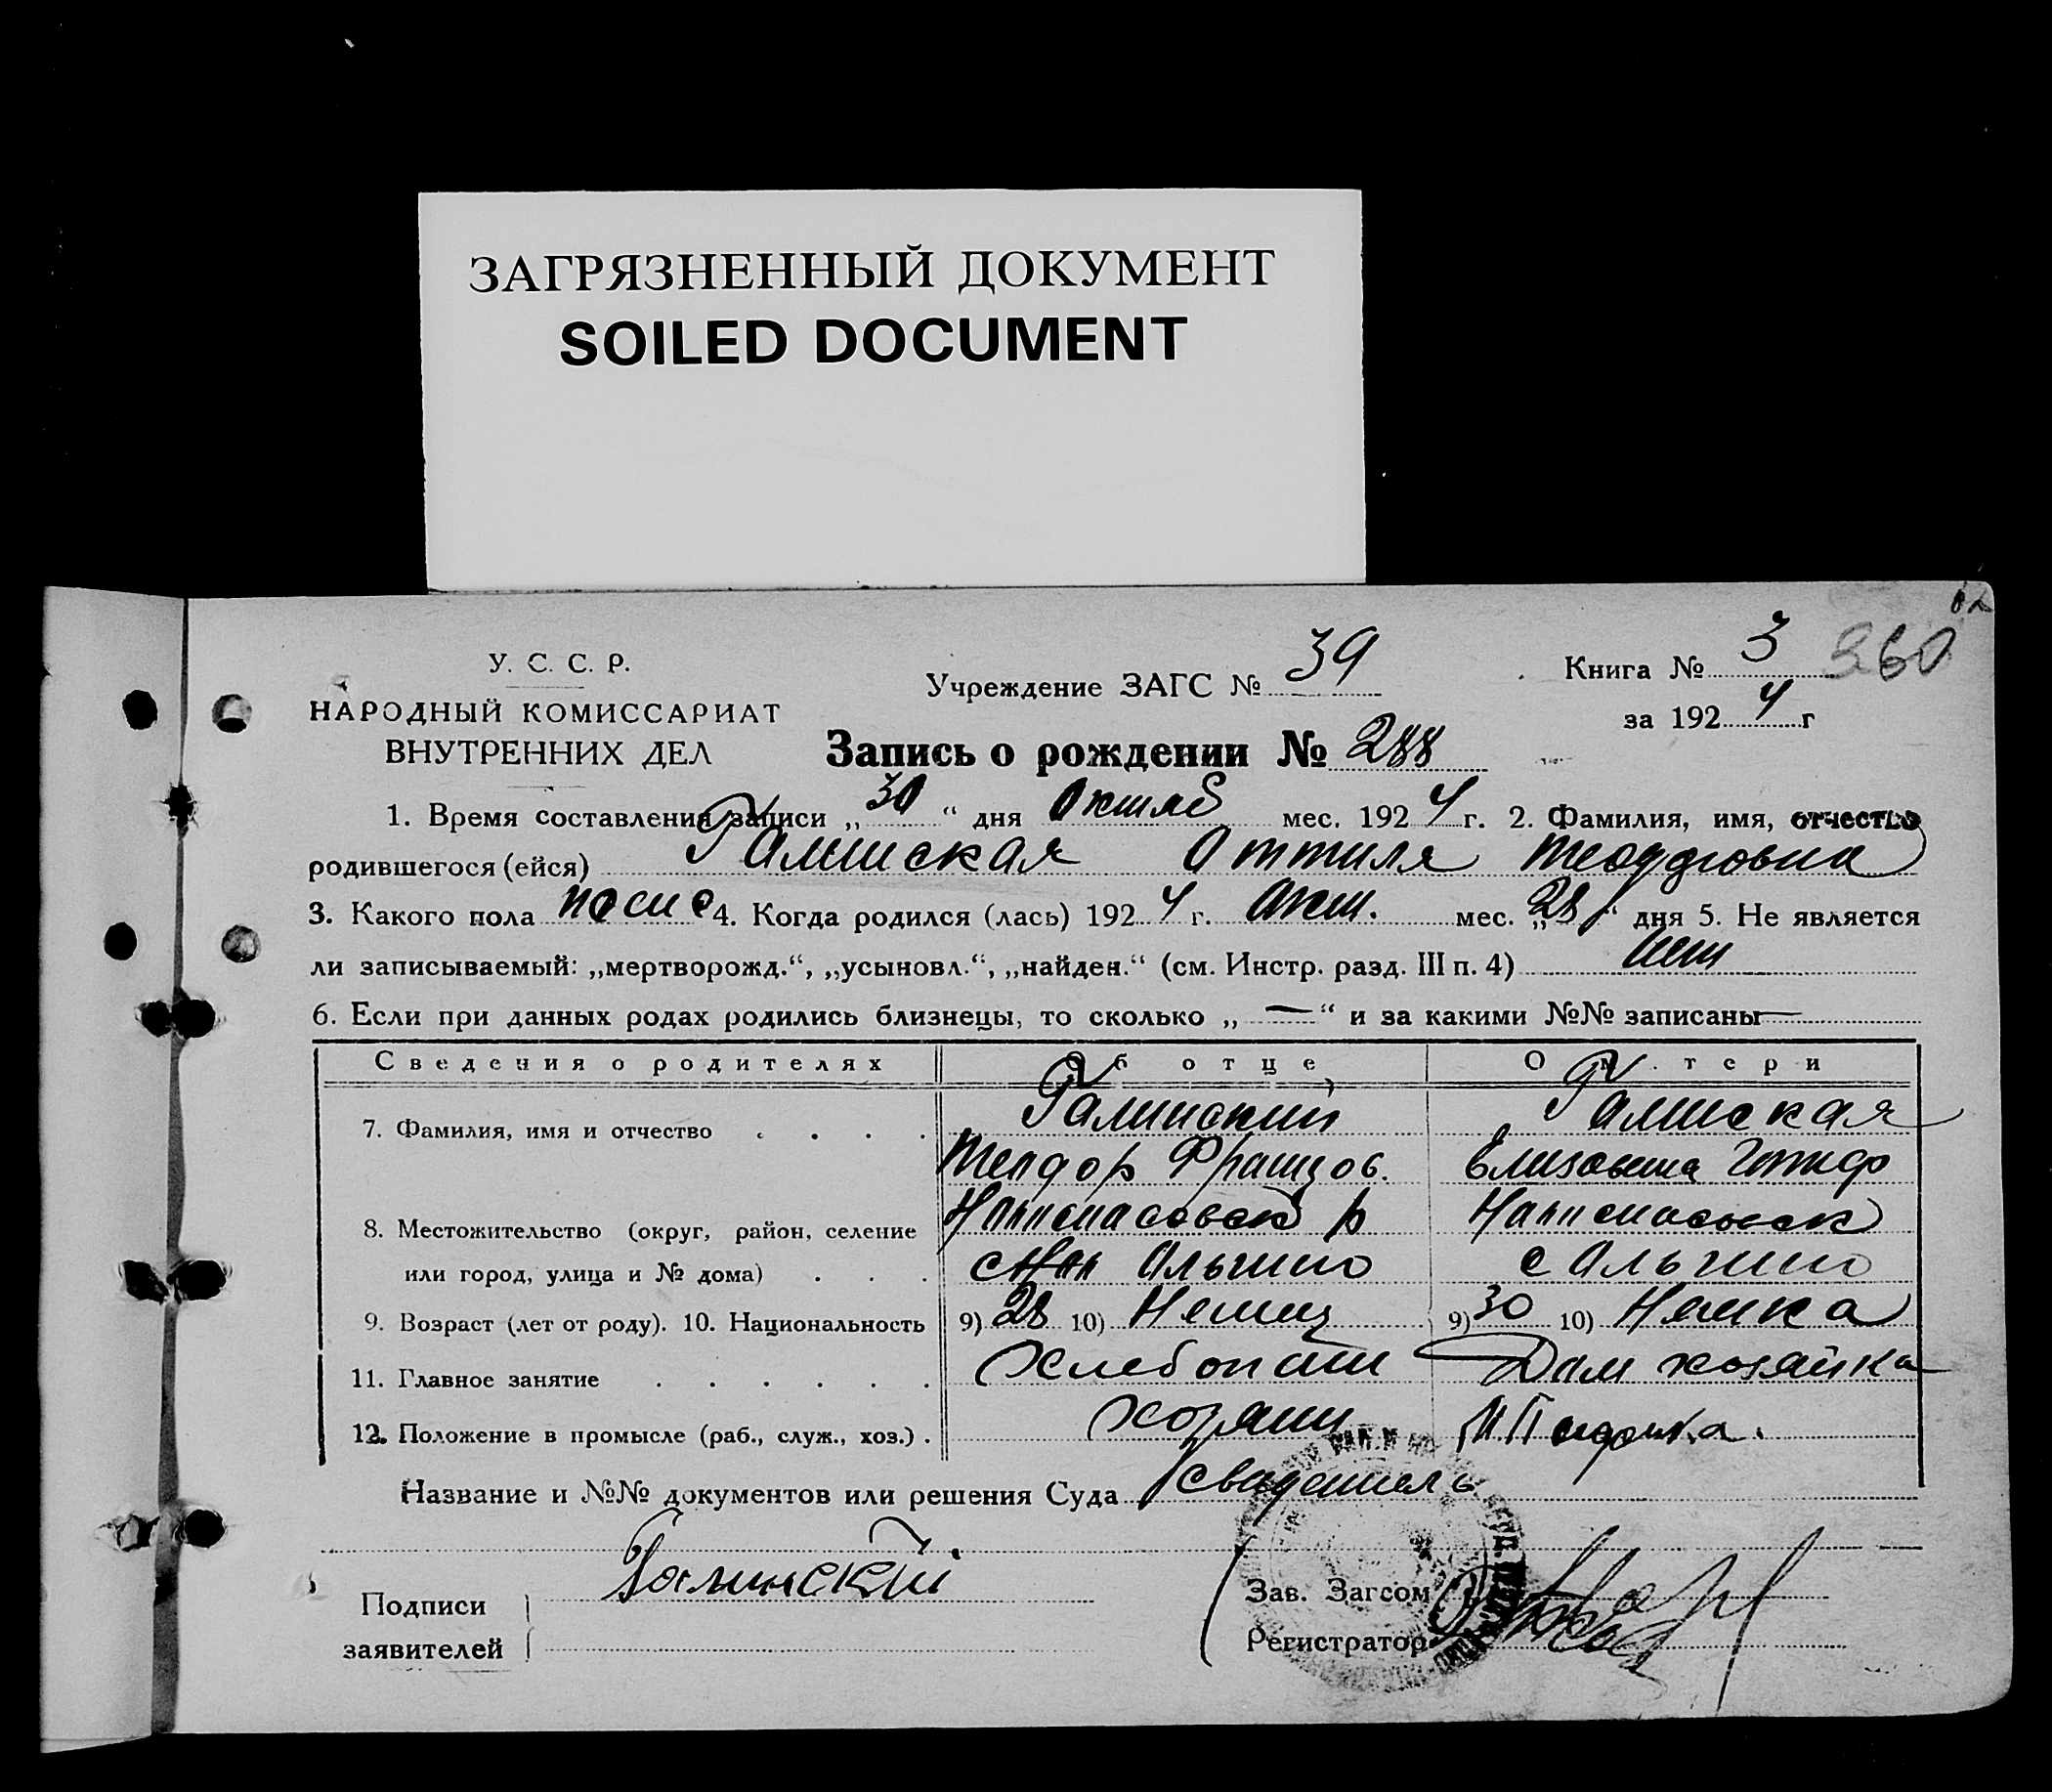 ЗАГРЯЗНЕННЫЙ ДОКУМЕНТ
SOILED DOCUMENT
360
У. С. С. Р.
НАРОДНЫЙ КОМИССАРИАТ
ВНУТРЕННИХ ДЕЛ
Учреждение ЗАГС № 39
Книга № 3
за 1924 г
Запись о рождении № 288
1. Время составления записи „30“ дня Октяб мес. 1924 г. 2. Фамилия, имя, отчество
родившегося (ейся) Галинская Оттиля Теодровна
3. Какого пола 4. Когда родился (лась) 1924 г. Окт. мес. „28“ дня 5. Не является
ли записываемый: „мертворожд.“, „усыновл.“, „найден.“ (см. Инстр. разд. III п. 4) нет
6. Если при данных родах родились близнецы, то сколько „—“ и за какими №№ записаны —
Сведения о родителях Об отце О матери
7. Фамилия, имя и отчество . . . . Галинский Галинская
Теодор Францов. Елизавета Готиф
8. Местожительство (округ, район, селение
или город, улица и № дома) . . . Ольгино с Ольгино
9. Возраст (лет от роду). 10. Национальность 9) 28 10) Немец 9) 30 10) Немка
11. Главное занятие . . . . . . Хлебопаш Дом хозяйка
12. Положение в промысле (раб., служ., хоз.) . Хозяин
Название и №№ документов или решения Суда свидетель
Подписи
заявителей
Галинский
Зав. Загсом
Регистратор